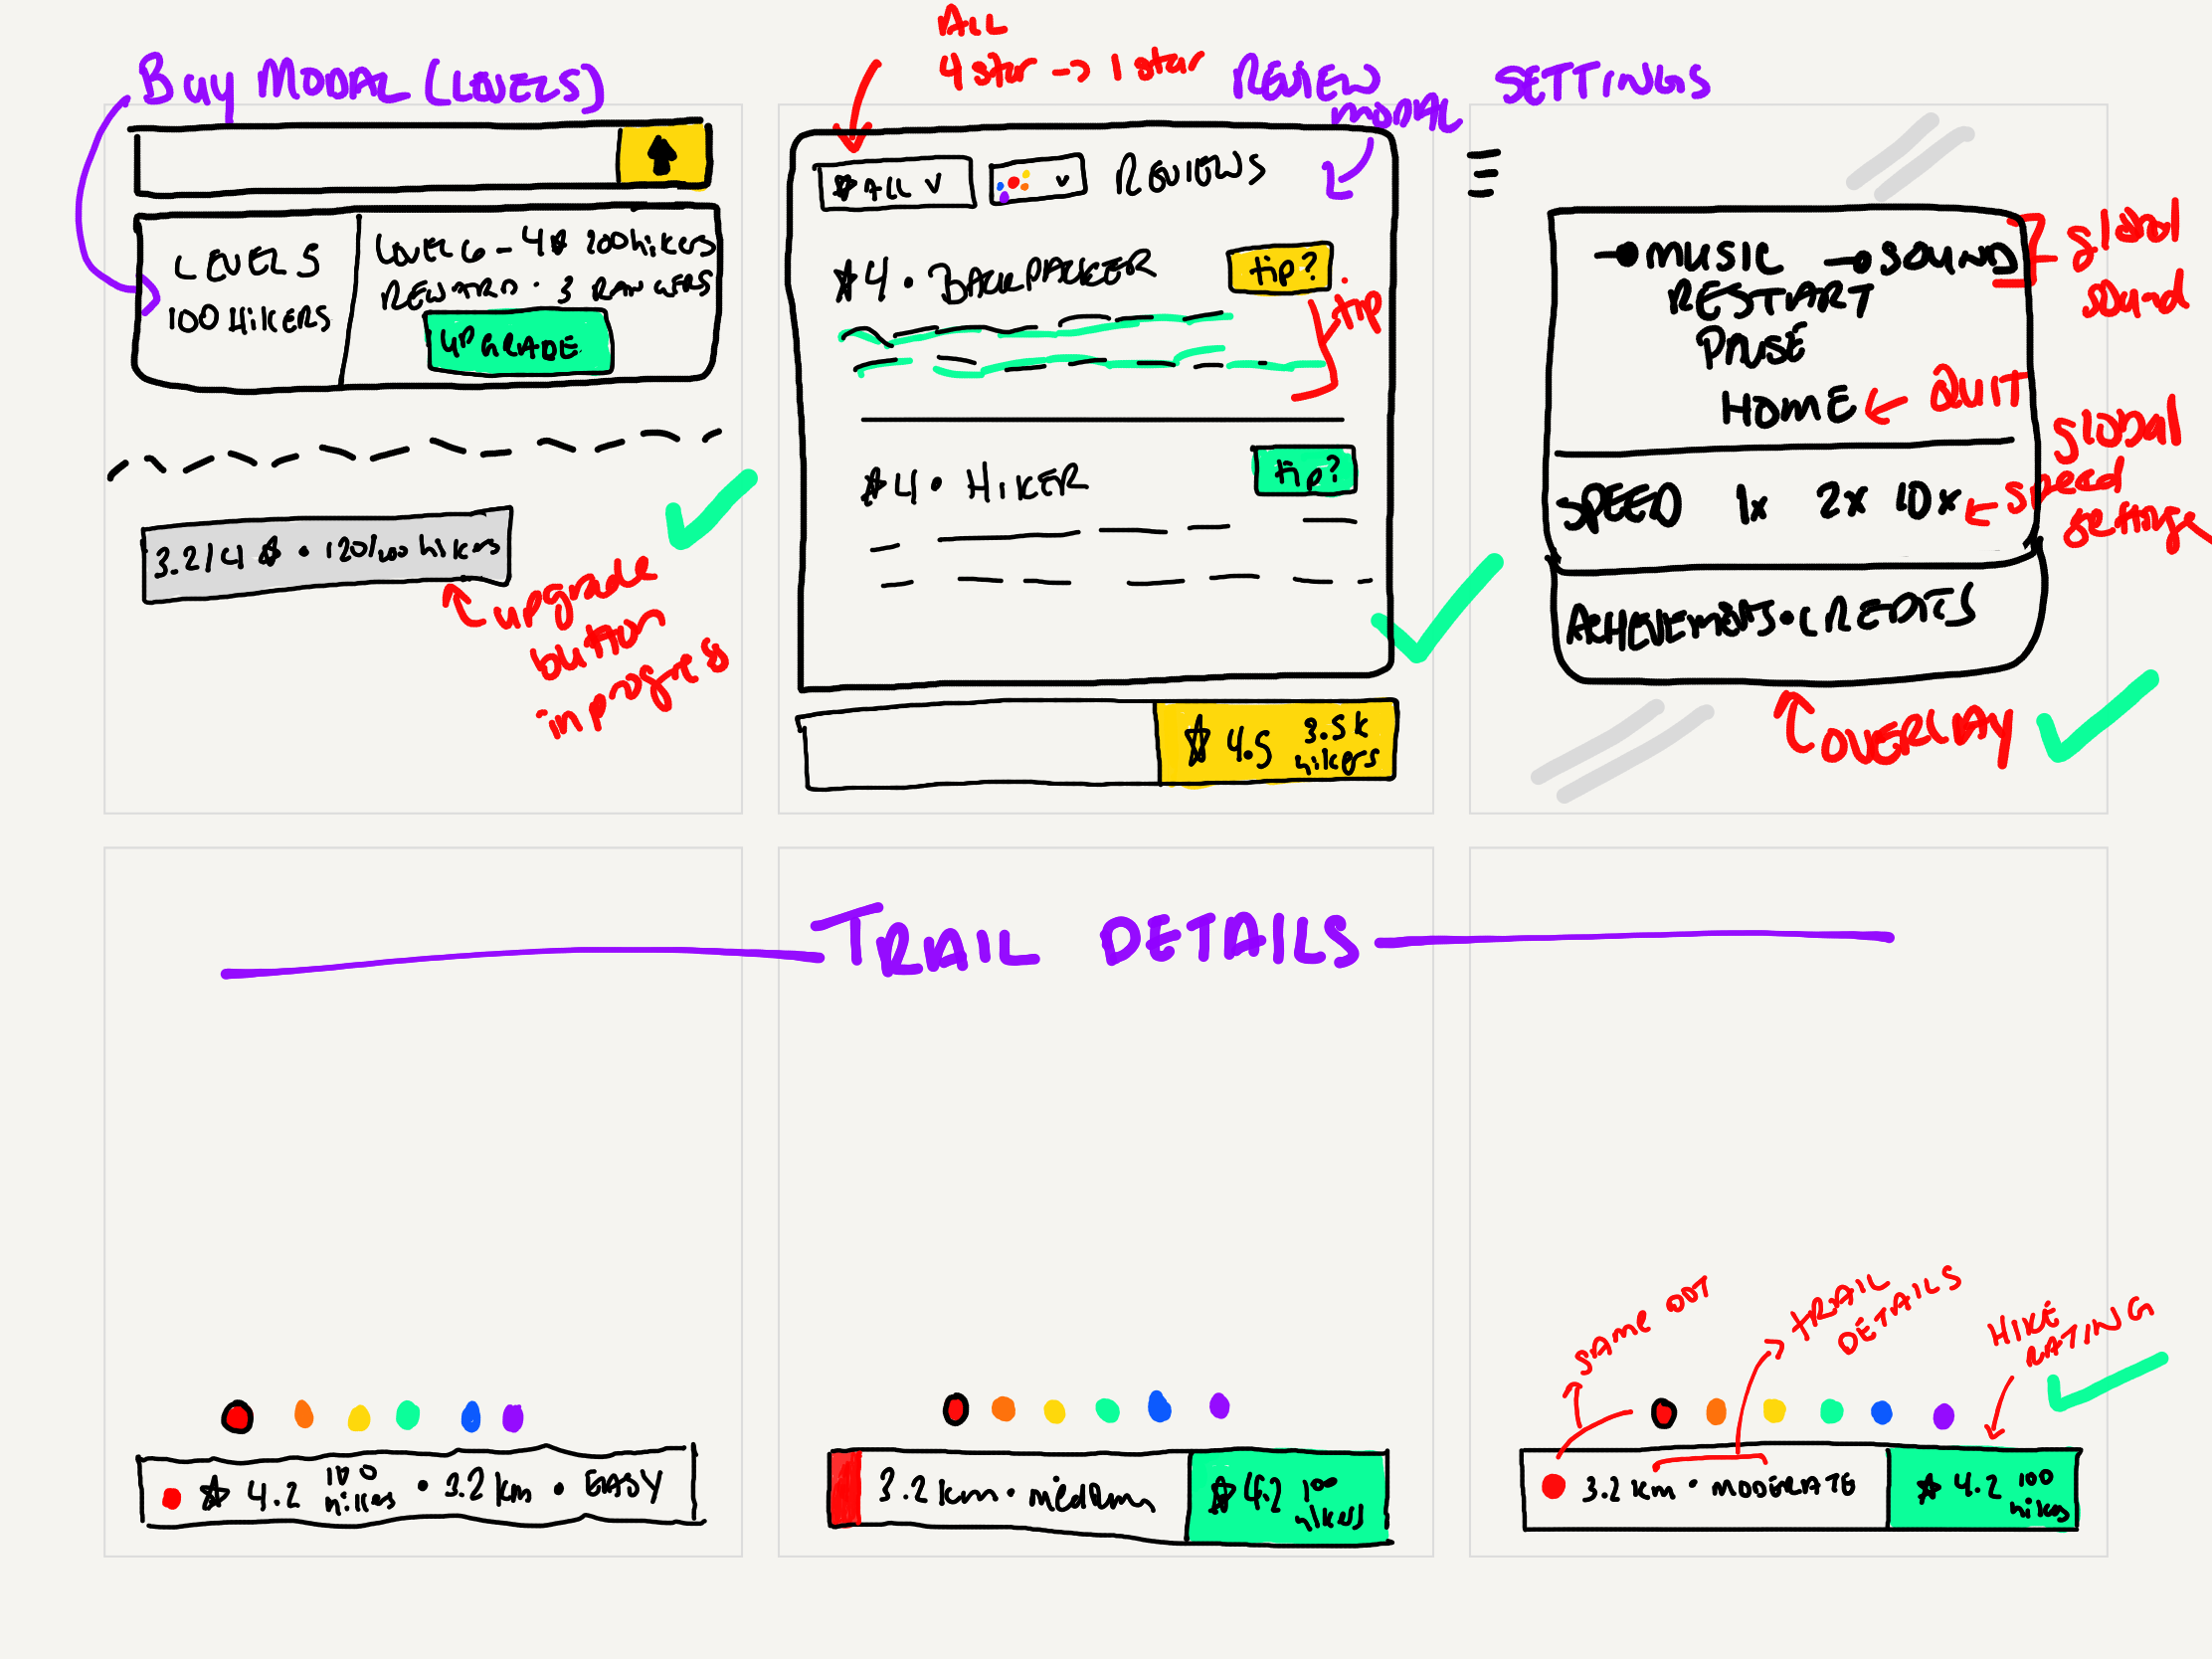 BUY MODAL (LEVELS)
LEVELS
100 HIKERS
LEVEL 6 - 4★ 200 hikers
REWARD · 3 RANGERS
UPGRADE
3.2/4 ★ • 120/100 hikers
upgrade
button
in progress
ALL
4 star -> 1 star
REVIEW
MODAL
★ ALL v
v
REVIEWS
★4 • BACKPACKER
tip?
tip
★4 • HIKER
tip?
★ 4.5
3.5k
hikers
SETTINGS
MUSIC
SOUND
global
sound
RESTART
PAUSE
HOME
QUIT
SPEED 1x 2x 10x
global
speed
settings
ACHIEVEMENTS • CREDITS
OVERLAY
TRAIL DETAILS
★ 4.2 100 hikers • 3.2 km • EASY
3.2 km • medium
★ 4.2 100
hikers
SAME DOT
TRAIL
DETAILS
HIKE
RATING
3.2 km • MODERATE
★ 4.2 100
hikers